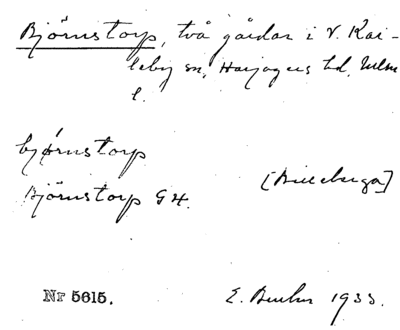 Björnstorp, två gårdar i V. Kar-
leby sn, Harjagers hd. Mlm
l.
bjørnstorp
Björnstorp G4.
[Billeberga]
Nr 5615.
E. 1933.